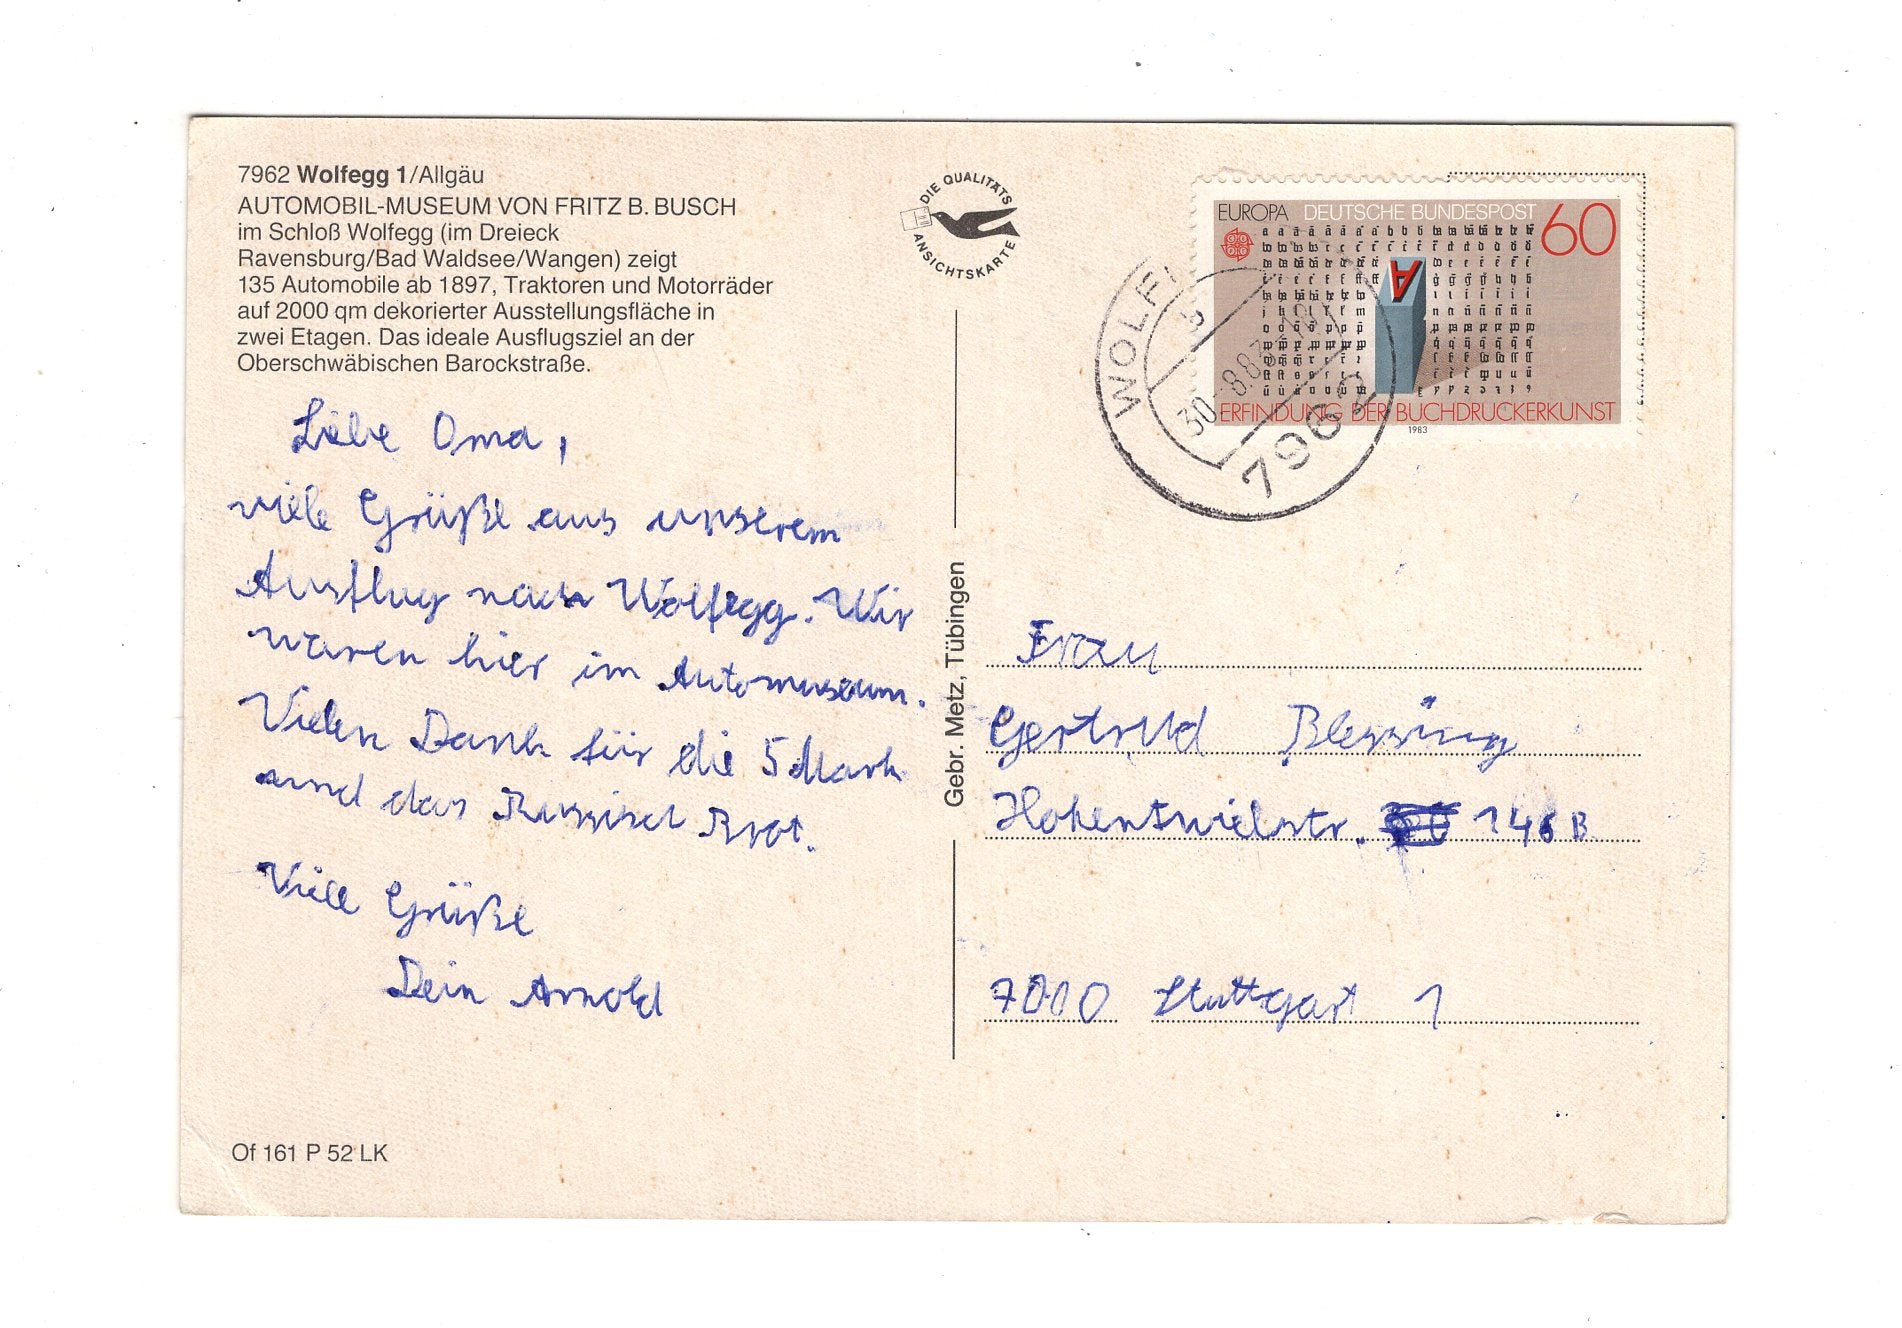 7962 Wolfegg 1/Allgäu
AUTOMOBIL-MUSEUM VON FRITZ B. BUSCH
im Schloß Wolfegg (im Dreieck
Ravensburg/Bad Waldsee/Wangen) zeigt
135 Automobile ab 1897, Traktoren und Motorräder
auf 2000 qm dekorierter Ausstellungsfläche in
zwei Etagen. Das ideale Ausflugsziel an der
Oberschwäbischen Barockstraße.
Liebe Oma,
viele Grüße aus unserem
Ausflug nach Wolfegg. Wir
waren hier im Automuseum.
Vielen Dank für die 5 Mark
und das Russisch Brot.
Viele Grüße
Dein Arnold
Of 161 P 52 LK
DIE QUALITÄTS
ANSICHTSKARTE
Gebr. Metz, Tübingen
EUROPA DEUTSCHE BUNDESPOST 60
A
ERFINDUNG DER BUCHDRUCKERKUNST
1983
WOLF
30.-8.83
7962
Frau
Gertrud Blessing
Hohentwielstr. 146 B
7000 Stuttgart 1